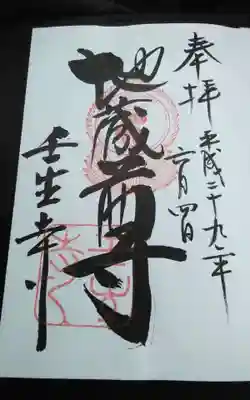 奉拝
平成二十九年
二月四日
地蔵尊
壬生寺